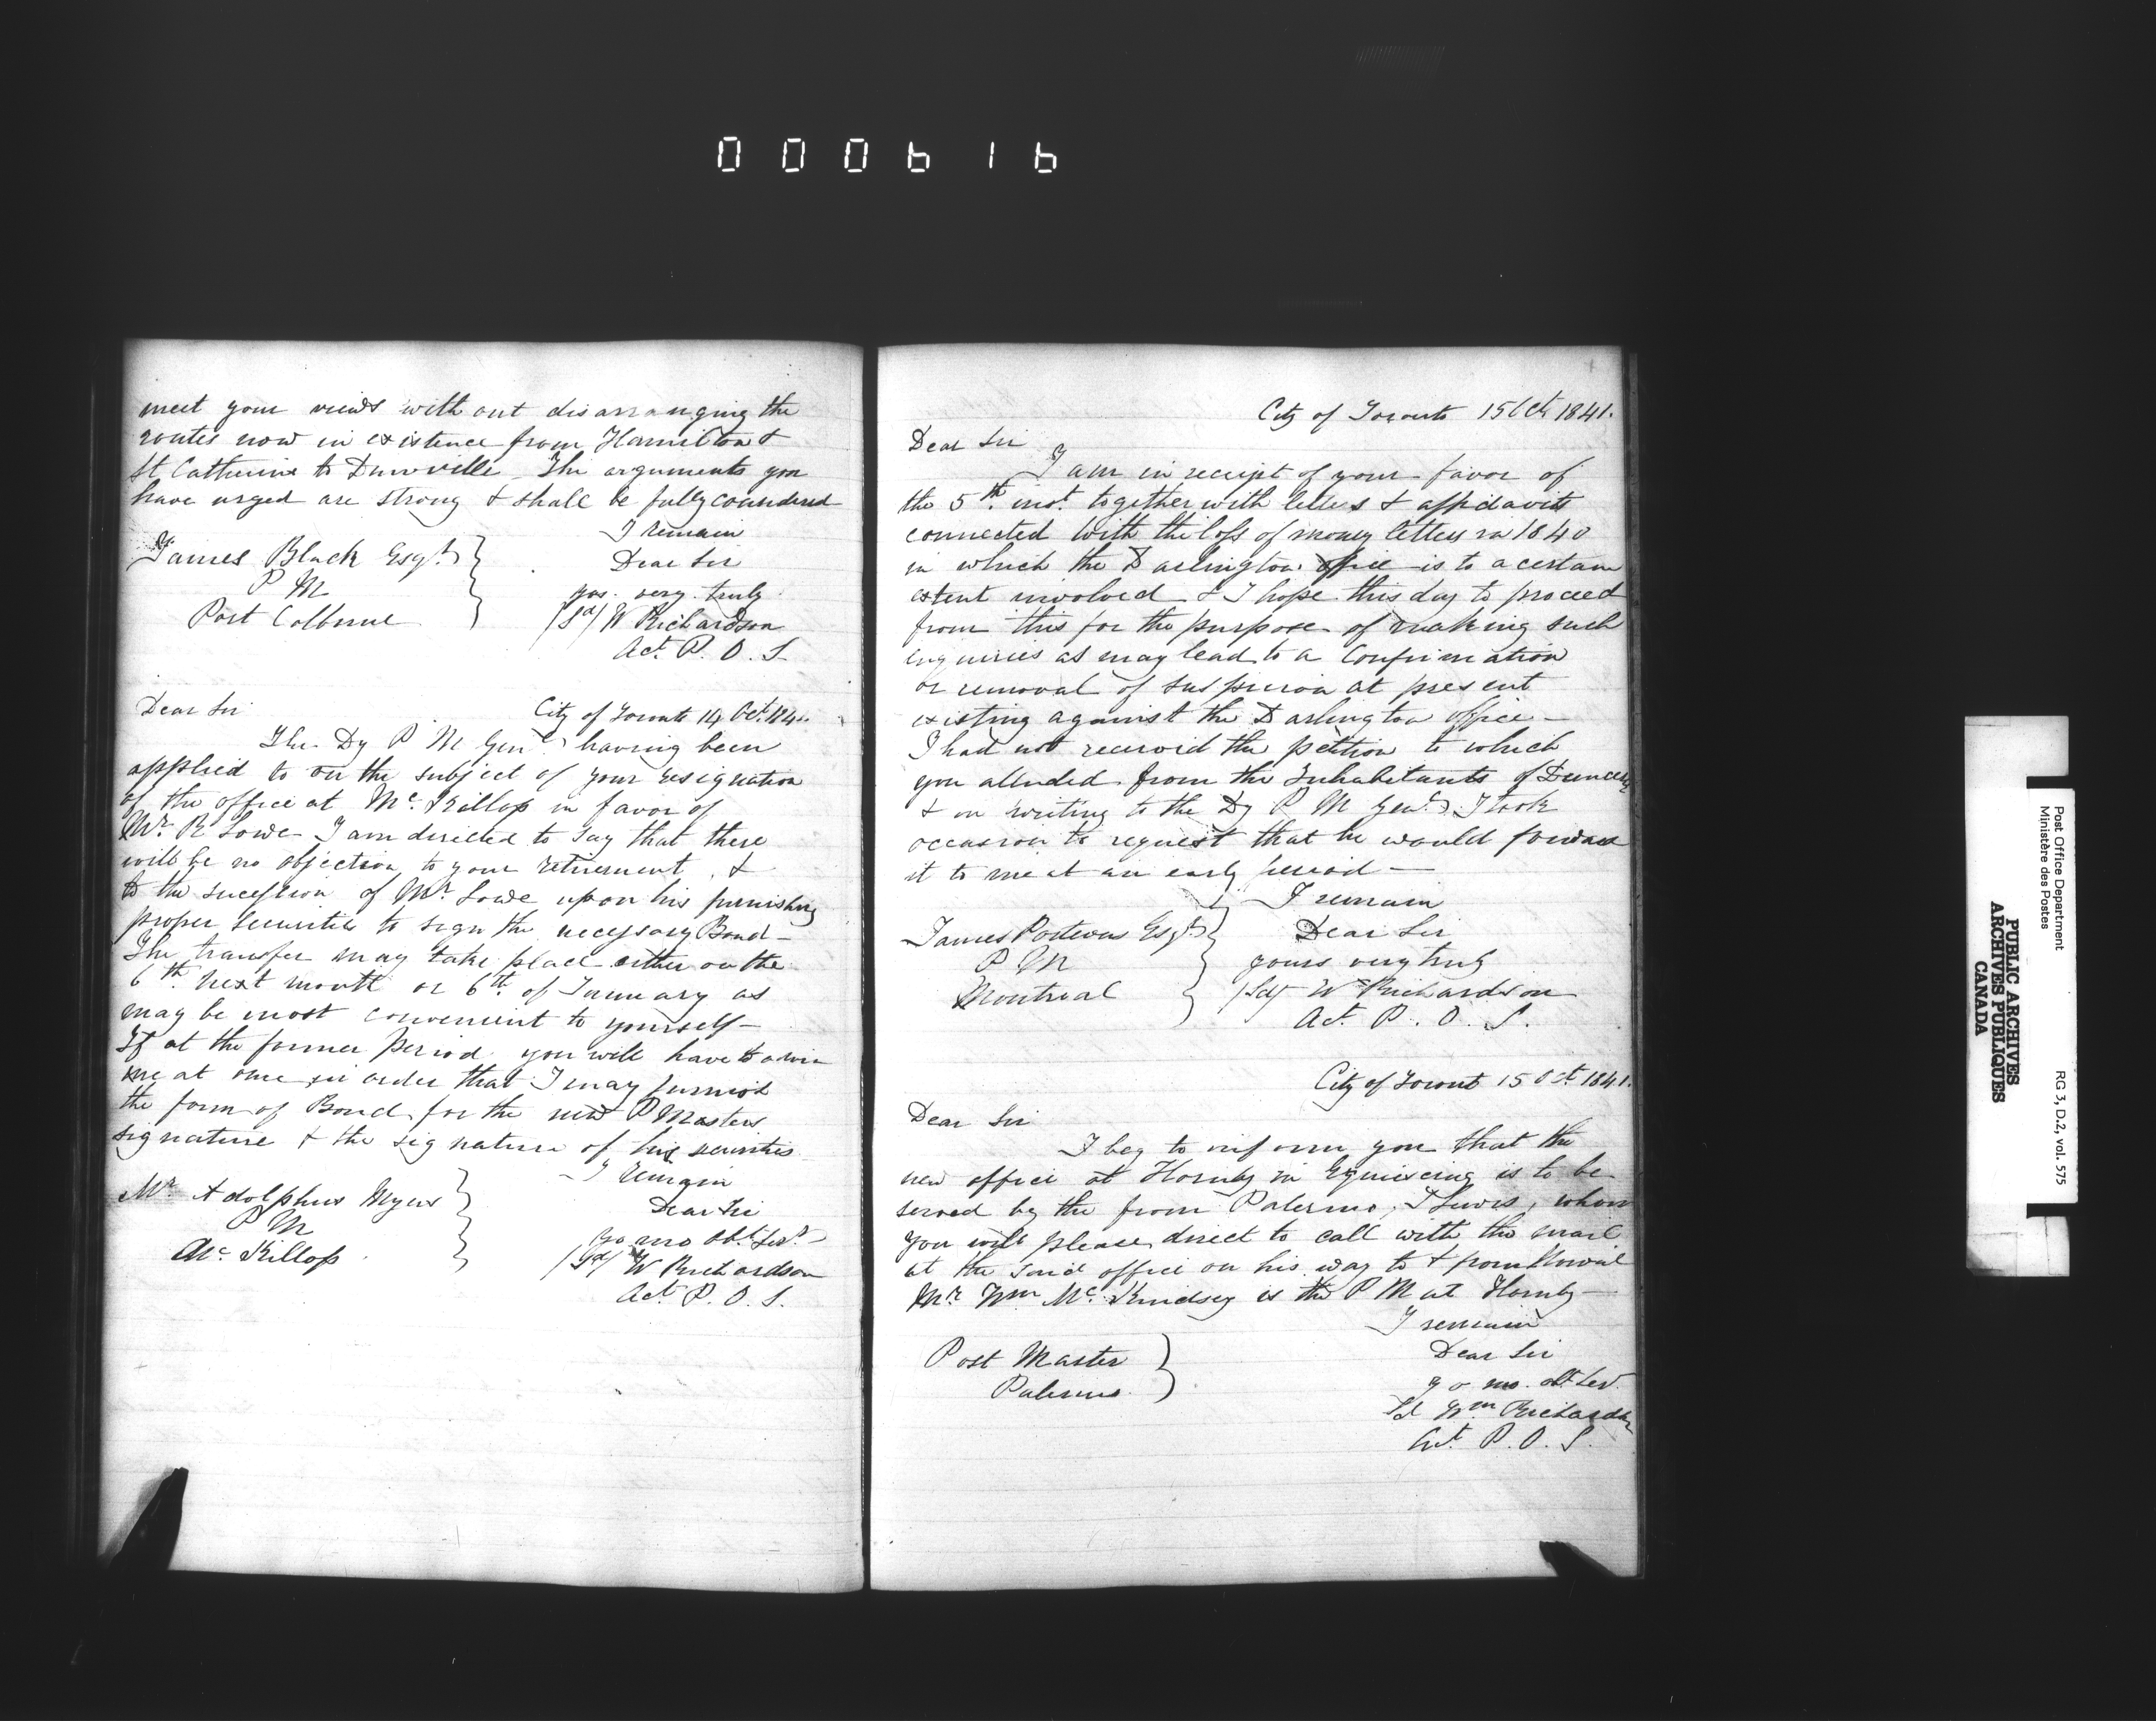 000616
meet your views with out disarranging the
routes now in existence from Hamilton &
St Catherine to Dunnville The arguments you
have urged are strong & shall be fully considered
I remain
James Black Esqr.
Dear Sir
P M
yrs. very truly
Port Colborne
(Sd) W Richardson
Act. P. O. S.
Dear Sir
City of Toronto 14 Oct. 184
The Dy P M Genl. having been
applied to on the subject of your resignation
of the office at Mc Killop in favor of
Mr. R Lowe I am directed to say that there
will be no objection to your retirement, &
to the sucession of Mr. Lowe upon his furnishing
proper securities to sign the necessary Bond -
The transfer may take place either on the
6th. next month or 6th. of January as
may be most convenient to yourself -
If at the former Period you will have to
me at once in order that I may furnish
the form of Bond for the new P Masters
signature & the signature of his securities
- I remain
Mr. Adolphus Myers
Dear Sir
P M
yo mo obt. Servt. -
Mc Killop
(Sd) W Richardson
Act. P. O. S.
City of Toronto 15 Oct. 1841.
Dear Sir
I am in receipt of your favor of
the 5th. inst. together with letters & affidavits
connected with the loss of money letters in 1840
in which the Darlington office is to a certain
extent involved & I hope this day to proceed
from this for the purpose of making such
enquiries as may lead to a confirmation
or removal of suspicion at present
existing against the Darlington office -
I had not received the petition to which
you alluded from the Inhabitants of
& on writing to the Dy P M Genl. I took
occasion to request that he would forward
it to me at an early period -
I remain
James Porteous Esqr.
Dear Sir
P M
yours very truly
Montreal
(Sd) W Richardson
Act. P. O. S.
City of Toront 15 Oct. 1841.
Dear Sir
I beg to inform you that the
new office at Hornby in Esquiesing is to be
served by the from Palermo, , whom
you will please direct to call with the mail
at the said office on his way to & from Norval
Mr. Wm Mc Kindsey is the P M at Hornby -
I remain
Post Master
Dear Sir
Palermo.
y o mo. obt. Sert.
Sd Wm Richardson
Act. P. O. S.
Post Office Department
Ministère des Postes
RG 3, D.2, vol. 575
PUBLIC ARCHIVES
ARCHIVES PUBLIQUES
CANADA